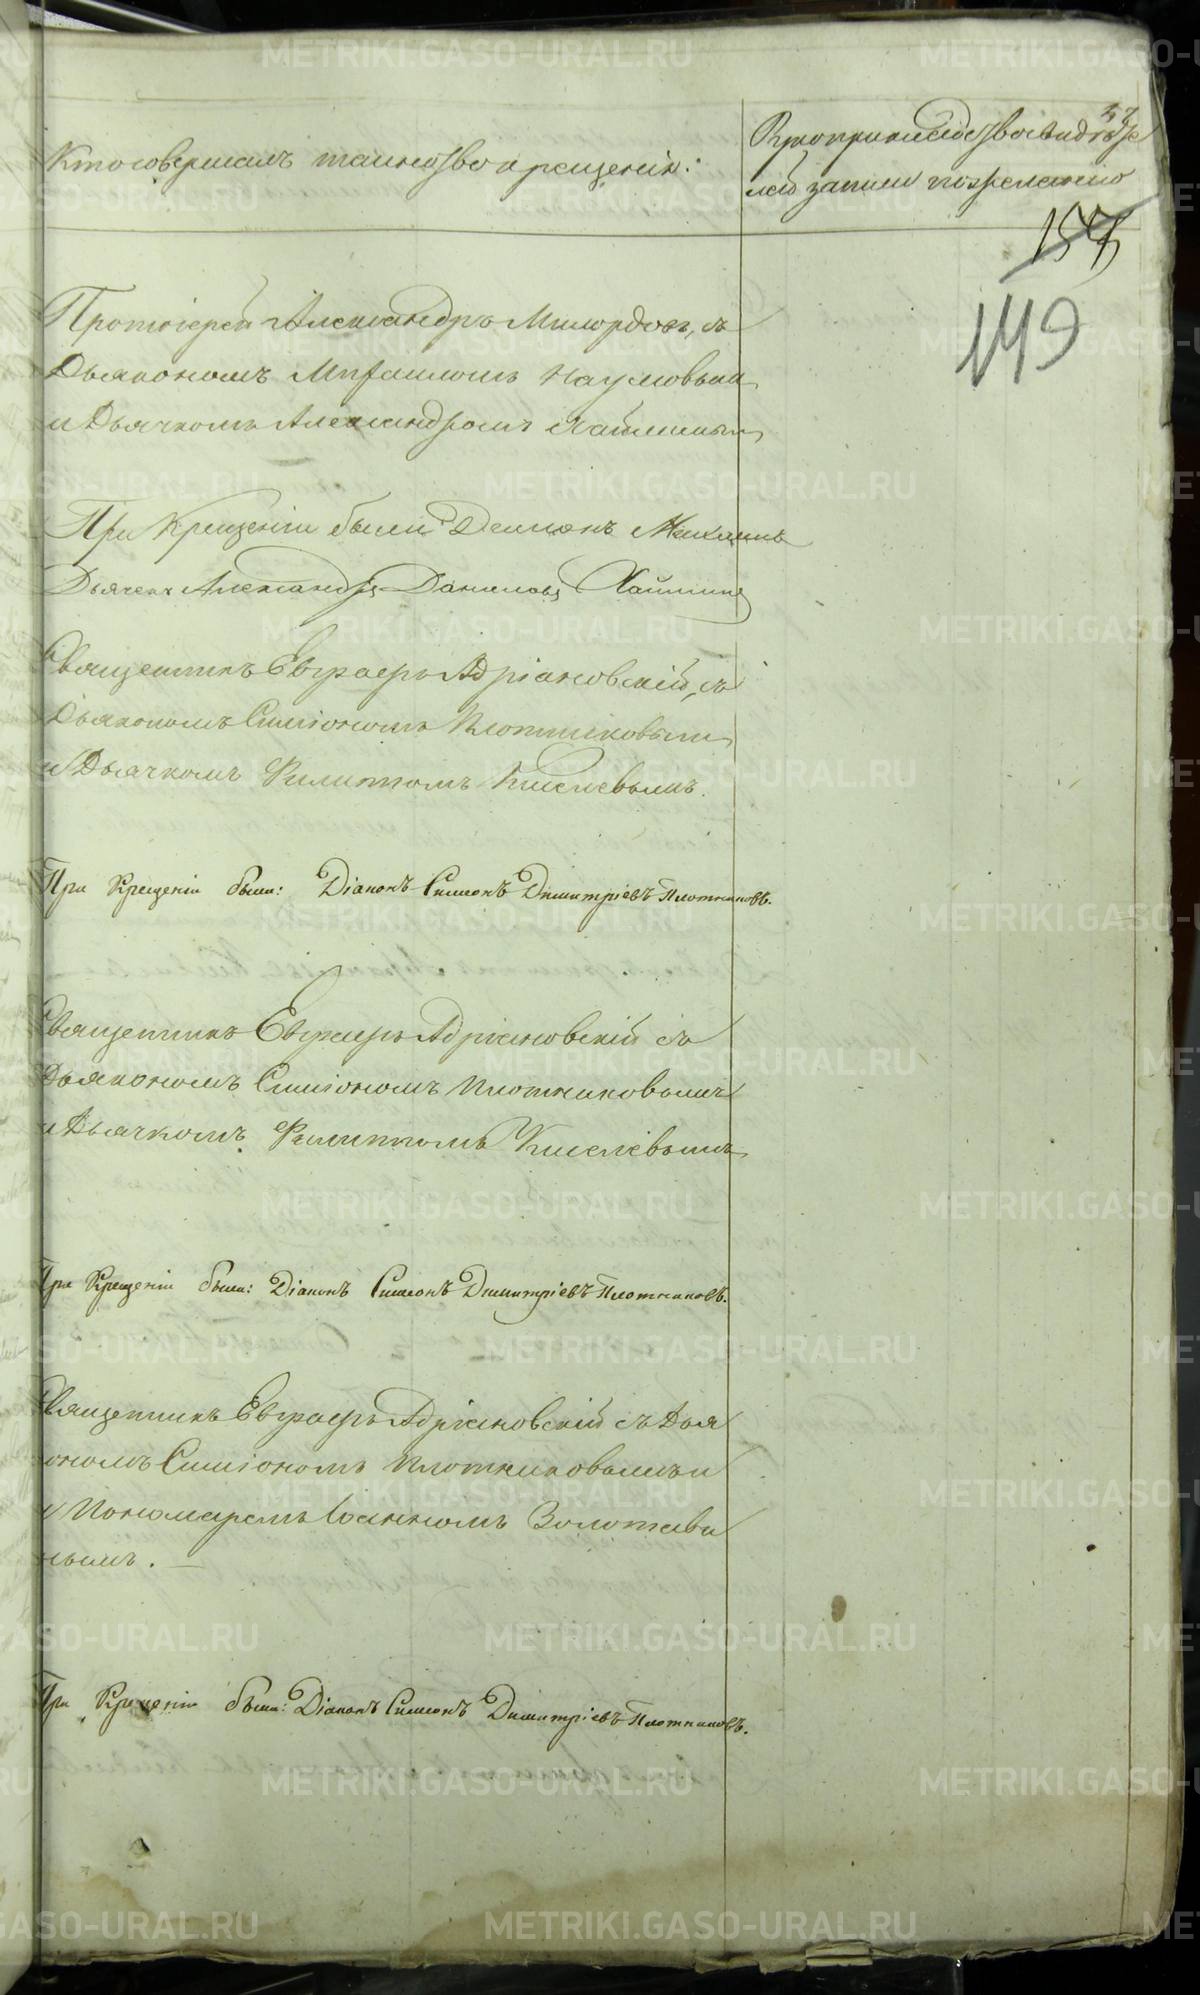 Кто совершалъ таинство крещенія:
Рукоприкладство свидѣте
лей записи по желанію
37
157
149
Протоіерей Александръ Милордовъ, съ
Дьякономъ Михаиломъ Наумовымъ
и Дьячкомъ Александромъ Хайминымъ
При Крещеніи были Діаконъ
Дьячекъ Александръ Даниловъ Хайминъ
Священникъ Евграфъ Адріановскій, съ
Дьякономъ Симіономъ Плотниковымъ
и Дьячкомъ Филиппомъ Киселевымъ.
При Крещеніи были: Діаконъ Симеонъ Димитріевъ Плотниковъ.
Священникъ Евграфъ Адріановскій съ
Дьякономъ Симіономъ Плотниковымъ
и Дьячкомъ Филиппомъ Киселевымъ
При Крещеніи были: Діаконъ Симеонъ Димитріевъ Плотниковъ.
Священникъ Евграфъ Адріановскій съ Дья
кономъ Симіономъ Плотниковымъ и
и Пономаремъ Іоанномъ Золотави
нымъ. —
При Крещеніи были: Діаконъ Симеонъ Димитріевъ Плотниковъ.
METRIKI.GASO-URAL.RU